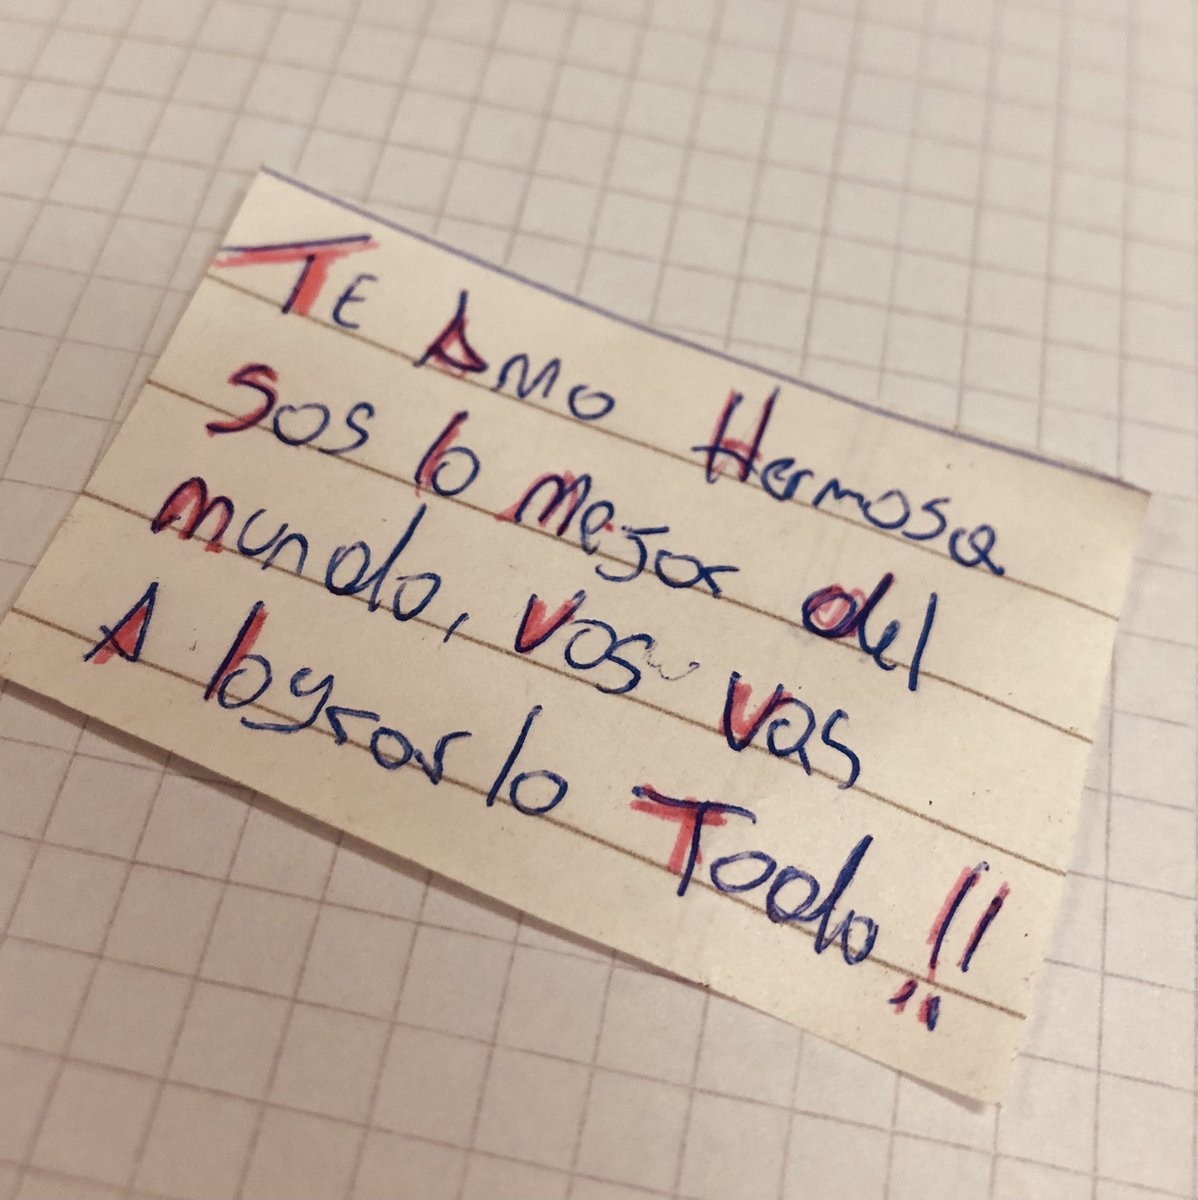 TE Amo Hermosa
Sos lo mejor del
mundo, vos vas
A lograrlo Todo!!